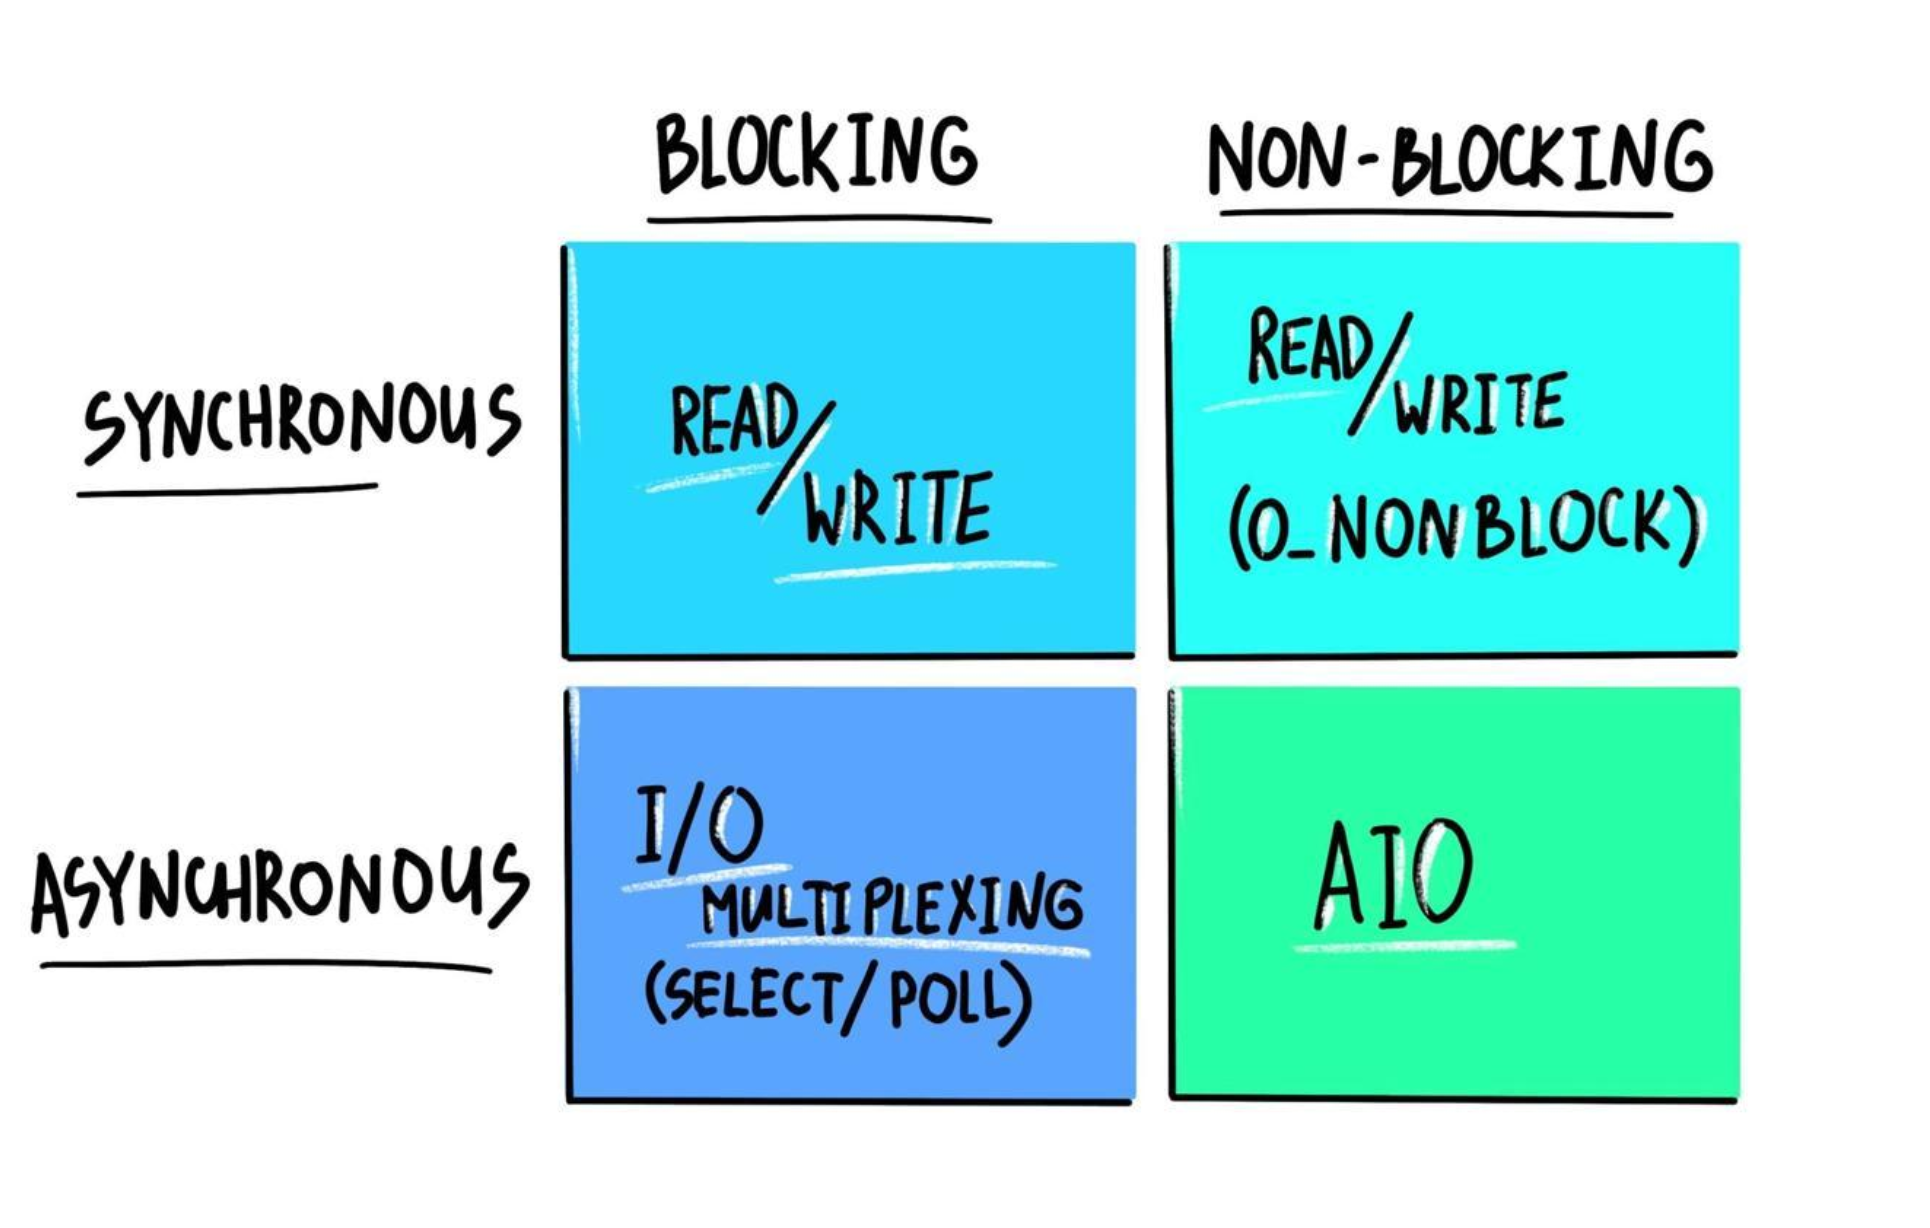 BLOCKING
NON-BLOCKING
SYNCHRONOUS
READ/WRITE
READ/WRITE
(O_NONBLOCK)
ASYNCHRONOUS
I/O
MULTIPLEXING
(SELECT/POLL)
AIO